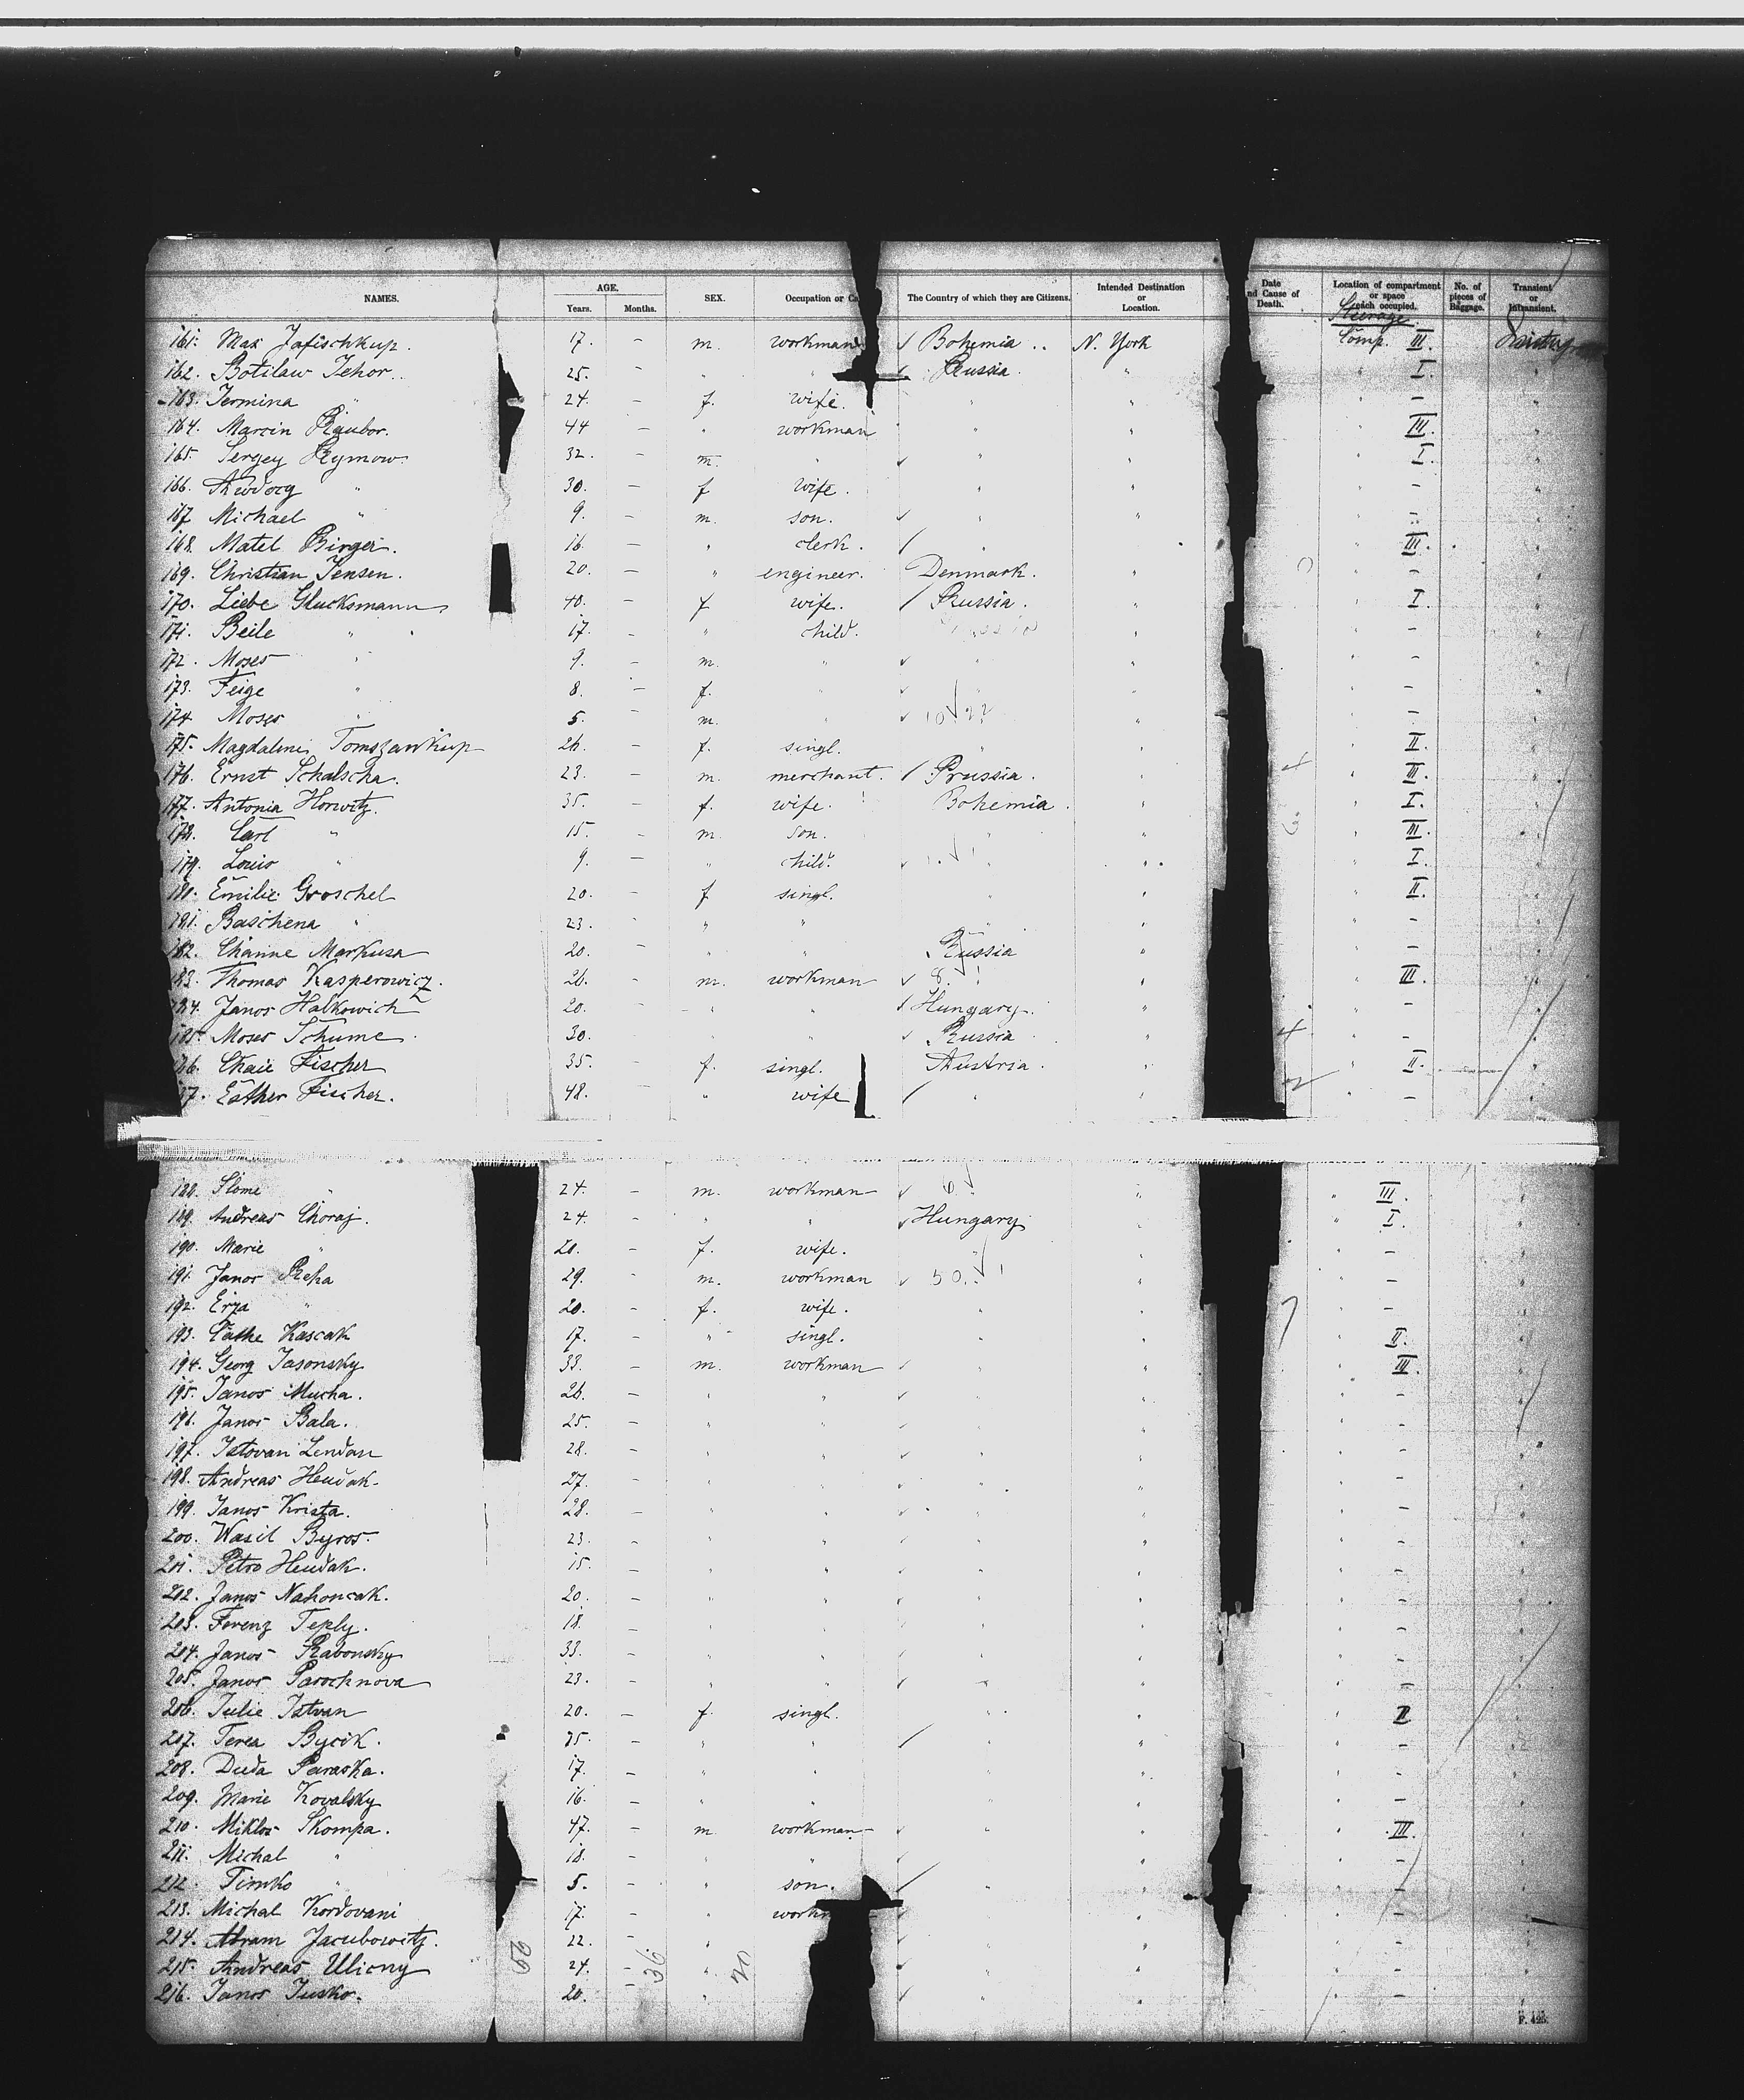 NAMES. AGE. Years. Months. SEX. Occupation or Ca The Country of which they are Citizens. Intended Destination or Location. Date nd Cause of Death. Location of compartment or space each occupied. No. of pieces of Baggage. Transient or Intransient.
Steerage
161. Max Jafischkup. 17. - m. workman ✓ Bohemia .. N. York Comp. III.
162. Botslaw Tehor. 25. " " ✓ Russia. " " I. "
163. Termina " 24. - f. wife. " " " - "
164. Marcin Raubor. 44 - " workman " " " III. "
165. Sergey Rymow. 32. - m. " ✓ " " " I. "
166. " 30. - f wife. " " " - "
167 Michael " 9. - m. son. ✓ " " " - "
168. Matel Birger. 16 - " clerk. / " " " III. "
169. Christian Jensen. 20. - " engineer. Denmark. " " - "
170. Liebe Glucksmann 40. - f wife. / Russia. " " I. "
171. Beile " 17. - " child. " " - "
172. Moses " 9. - m. " ✓ " " " - "
173. Feige " 8. - f. " ✓ " " " - "
174 Moses " 5. - m. " ✓ " " - "
175. Magdalini Tomszawkup 26. - f. singl. " " " II. "
176. Ernst Schalscha. 23. - m. merchant. / Prussia. " " III. "
177. Antonia Horwitz. 35. - f. wife. Bohemia. " " I. "
178. Carl " 15. - m. son. " " " III. "
179. Louis " 9. - " child. ✓ " " " I. "
180. Emilie Groschel 20. - f singl. " " " II. "
181. Baschena " 23. - " " " " " - "
182. Channe Markusa 20. - " " Russia " " - "
183. Thomas Kasperowicz. 26. - m. workman ✓ 8. " " III. "
184. Janos Halkowich 20. - " " / Hungary. " " - "
185. Moses Schume 30. - " " ✓ Russia " 4 " - "
186. Chaie Fischer 35. - f. singl. Austria. " " II. "
187. Esther Fischer. 48. - " wife / " " 2 " - "
188. Slome " 24. - m. workman ✓ 6 " " III. "
189. Andreas Choraj. 24. - " " ✓ Hungary " " I. "
190. Marie " 20. - f. wife. " " - "
191. Janos Reha 29. - m. workman ✓ 50. " " - "
192. Erza " 20. - f. wife. " " " - "
193. Cathe Kascak 17. - " singl. " " " II. "
194. Georg Jasonsky 33. - m. workman ✓ " " " III. "
195. Janos Mucha. 26. - " " ✓ " " " - "
196. Janos Bala. 25. - " " ✓ " " " - "
197. Istovan Lendan 28. - " " ✓ " " " - "
198. Andreas Hendak. 27. - " " ✓ " " " - "
199. Janos Krista. 28. - " " ✓ " " " - "
200. Wasil Byros. 23. - " " ✓ " " " - "
201. Petro Hendak. 15. - " " ✓ " " " - "
202. Janos Nahoncak. 20. - " " ✓ " " " - "
203. Ferenz Teply. 18. - " " ✓ " " " - "
204. Janos Rabonsky 33. - " " ✓ " " " - "
205. Janos Parochnova 23. - " " ✓ " " " - "
206. Julie Istvan 20. - f. singl. " " " II "
207. Terea Bycik. 35. - " " / " " " - "
208. Duda Paraska. 17. - " " " " " - "
209. Marie Kovalsky 16. - " " " " " - "
210. Miklos Skompa. 47. - m workman ✓ " " " III. "
211. Michal " 18. - " " ✓ " " " - "
212. Timko " 5. - " son. / " " " - "
213. Michal Kordovani 17. - " workm ✓ " " " - "
214. Abram Jacubowitz. 22. - " ✓ " " " - "
215. Andreas Ulicny 24. - " ✓ " " " - "
216. Janos Jusko. 20. - " ✓ " " " - "
F. 425.